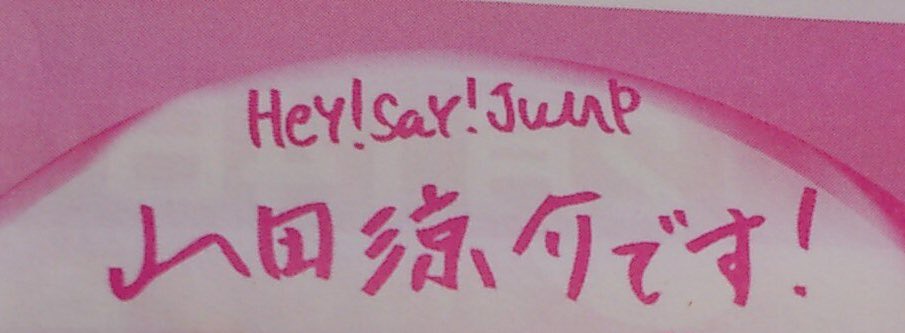 Hey!Say!Jump
山田涼介です!